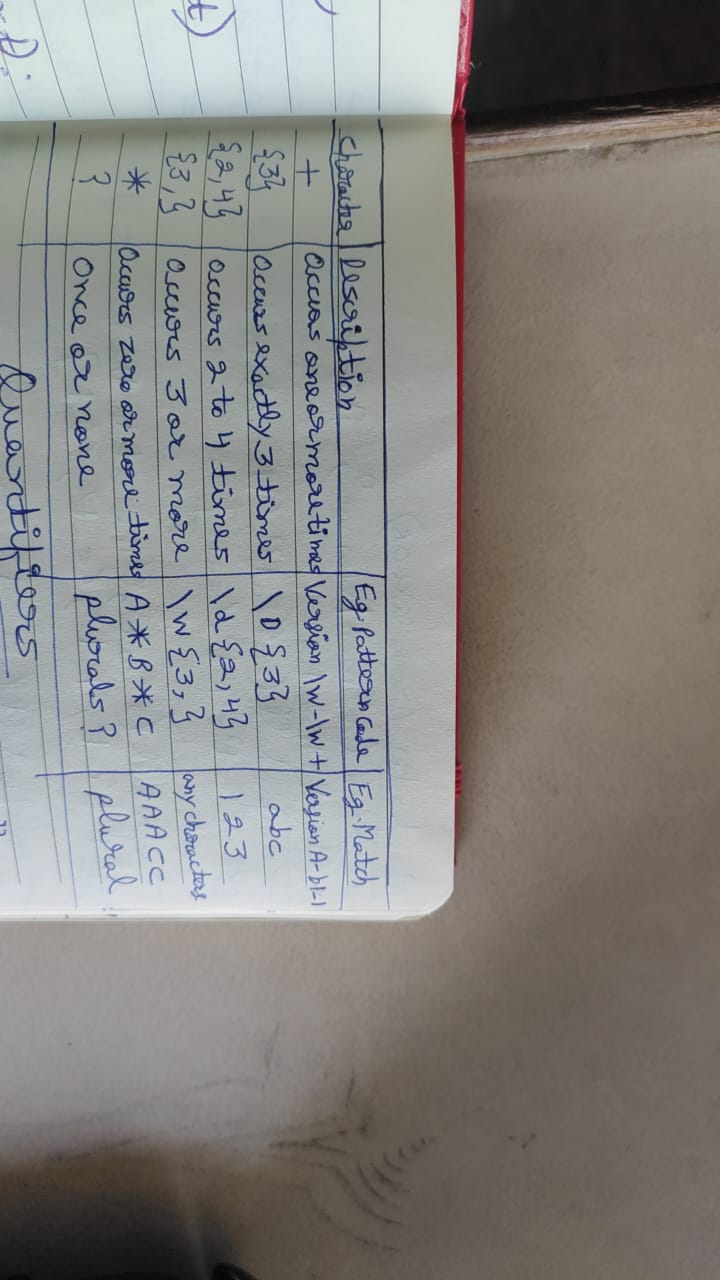 Character Description Eg. Pattern Code Eg. Match
+ Occurs one or more times Version \w-\w+ Version A-b1-1
{3} Occurs exactly 3 times \D {3} abc
{2,4} Occurs 2 to 4 times \d {2,4} 123
{3,} Occurs 3 or more \w {3,} any characters
* Occurs zero or more times A*B*C AAACC
? Once or none plurals? plural
Quantifiers